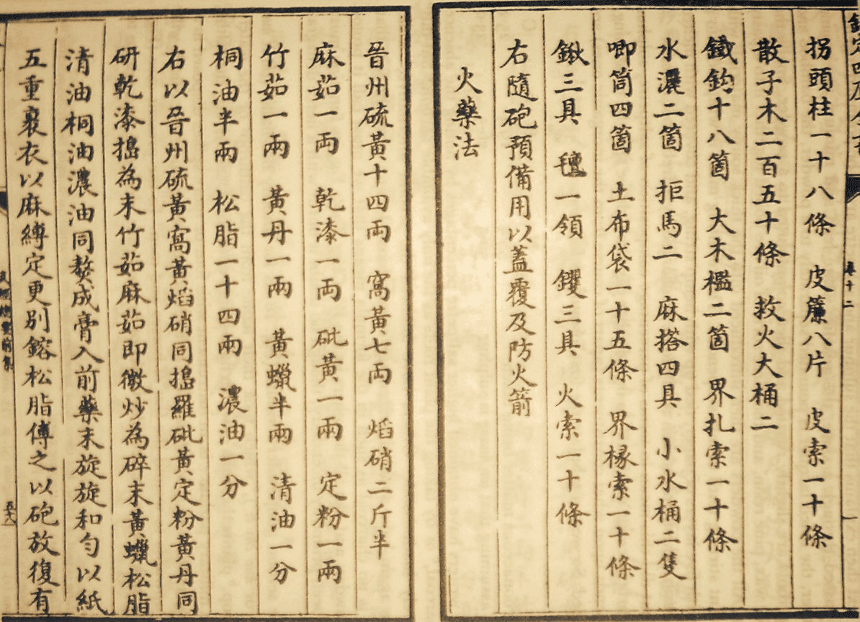 拐頭柱一十八條 皮簾八片 皮索一十條
散子木二百五十條 救火大桶二
鐵鈎十八箇 大木檻二箇 界扎索一十條
水二箇 拒馬二 麻搭四具 小水桶二隻
唧筒四箇 土布袋一十五條 界椽索一十條
鍬三具 氊一領 钁三具 火索一十條
右隨砲預備用以蓋覆及防火箭
火藥法
晉州硫黃十四兩 窩黃七兩 焰硝二斤半
麻茹一兩 乾漆一兩 砒黃一兩 定粉一兩
竹茹一兩 黃丹一兩 黃蠟半兩 清油一分
桐油半兩 松脂一十四兩 濃油一分
右以晉州硫黃窩黃焰硝同搗羅砒黃定粉黃丹同
研乾漆搗為末竹茹麻茹即微炒為碎末黃蠟松脂
清油桐油濃油同熬成膏入前藥末旋旋和勻以紙
五重裹衣以麻縛定更別鎔松脂傅之以砲放復有